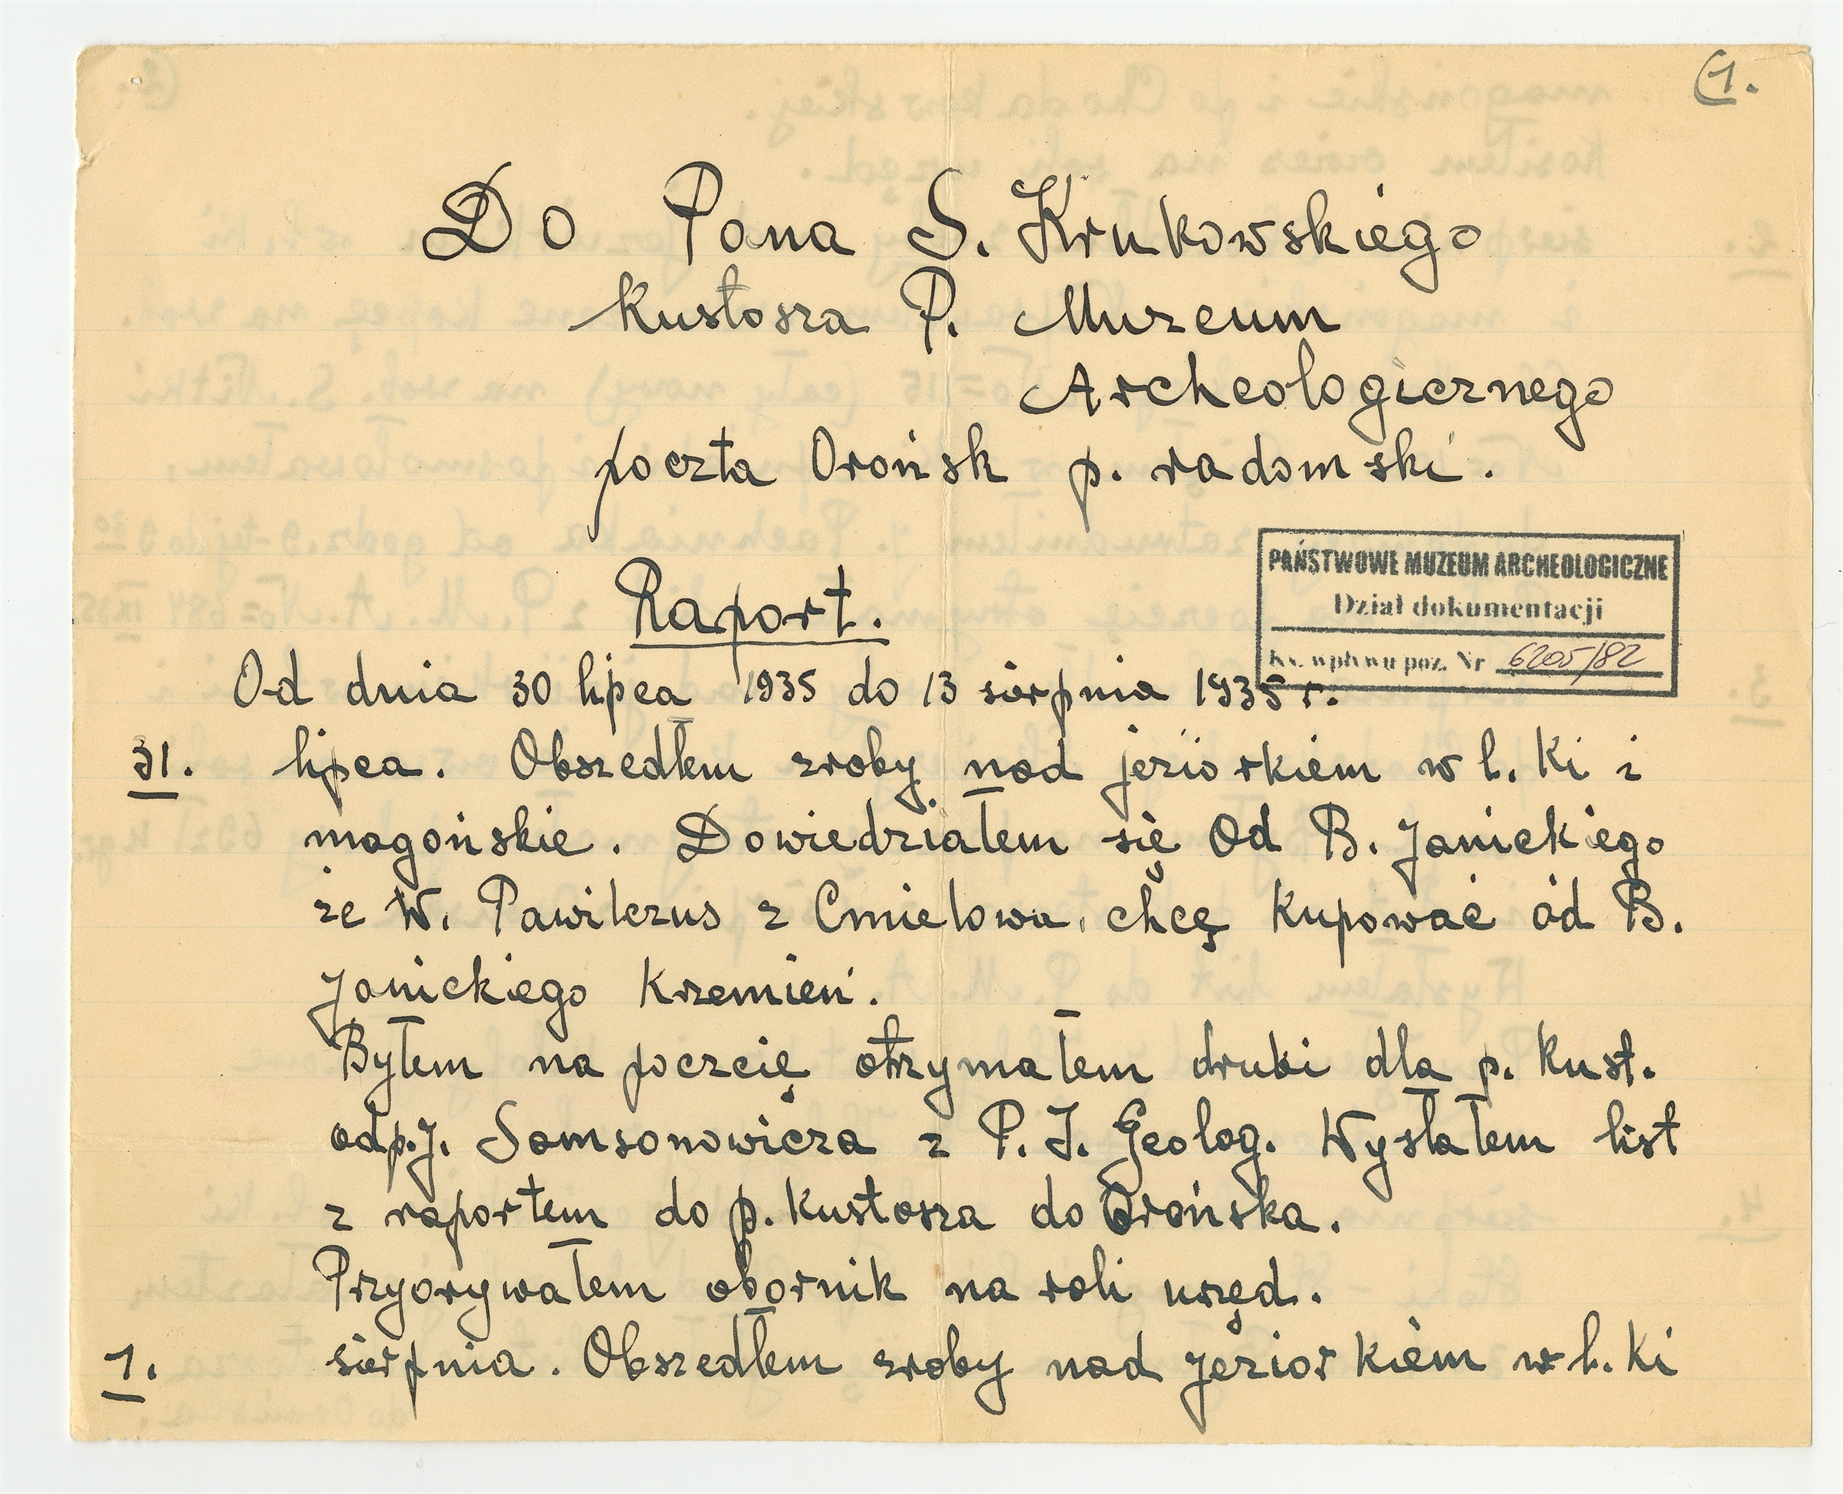 (1.
Do Pana S. Krukowskiego
Kustosza P. Muzeum
Archeologicznego
poczta Orońsk p. radomski.
PAŃSTWOWE MUZEUM ARCHEOLOGICZNE
Dział dokumentacji
Ks. wpływu poz. Nr 6205/82
Raport.
Od dnia 30 lipca 1935 do 13 sierpnia 1935 r.
31. lipca. Obszedłem zroby nad jeziorkiem w l. Ki i
magońskie. Dowiedziałem się od B. Janickiego
że W. Pawilczus z Cmielowa, chcę kupować od B.
Janickiego Krzemień.
Byłem na poczcię otrzymałem druki dla p. Kust.
od p. J. Samsonowicza z P. I. Geolog. Wysłałem list
z raportem do p. Kustosza do Orońska.
Przyorywałem obornik na roli urzęd.
1. sierpnia. Obszedłem zroby nad jeziorkiem w l. Ki